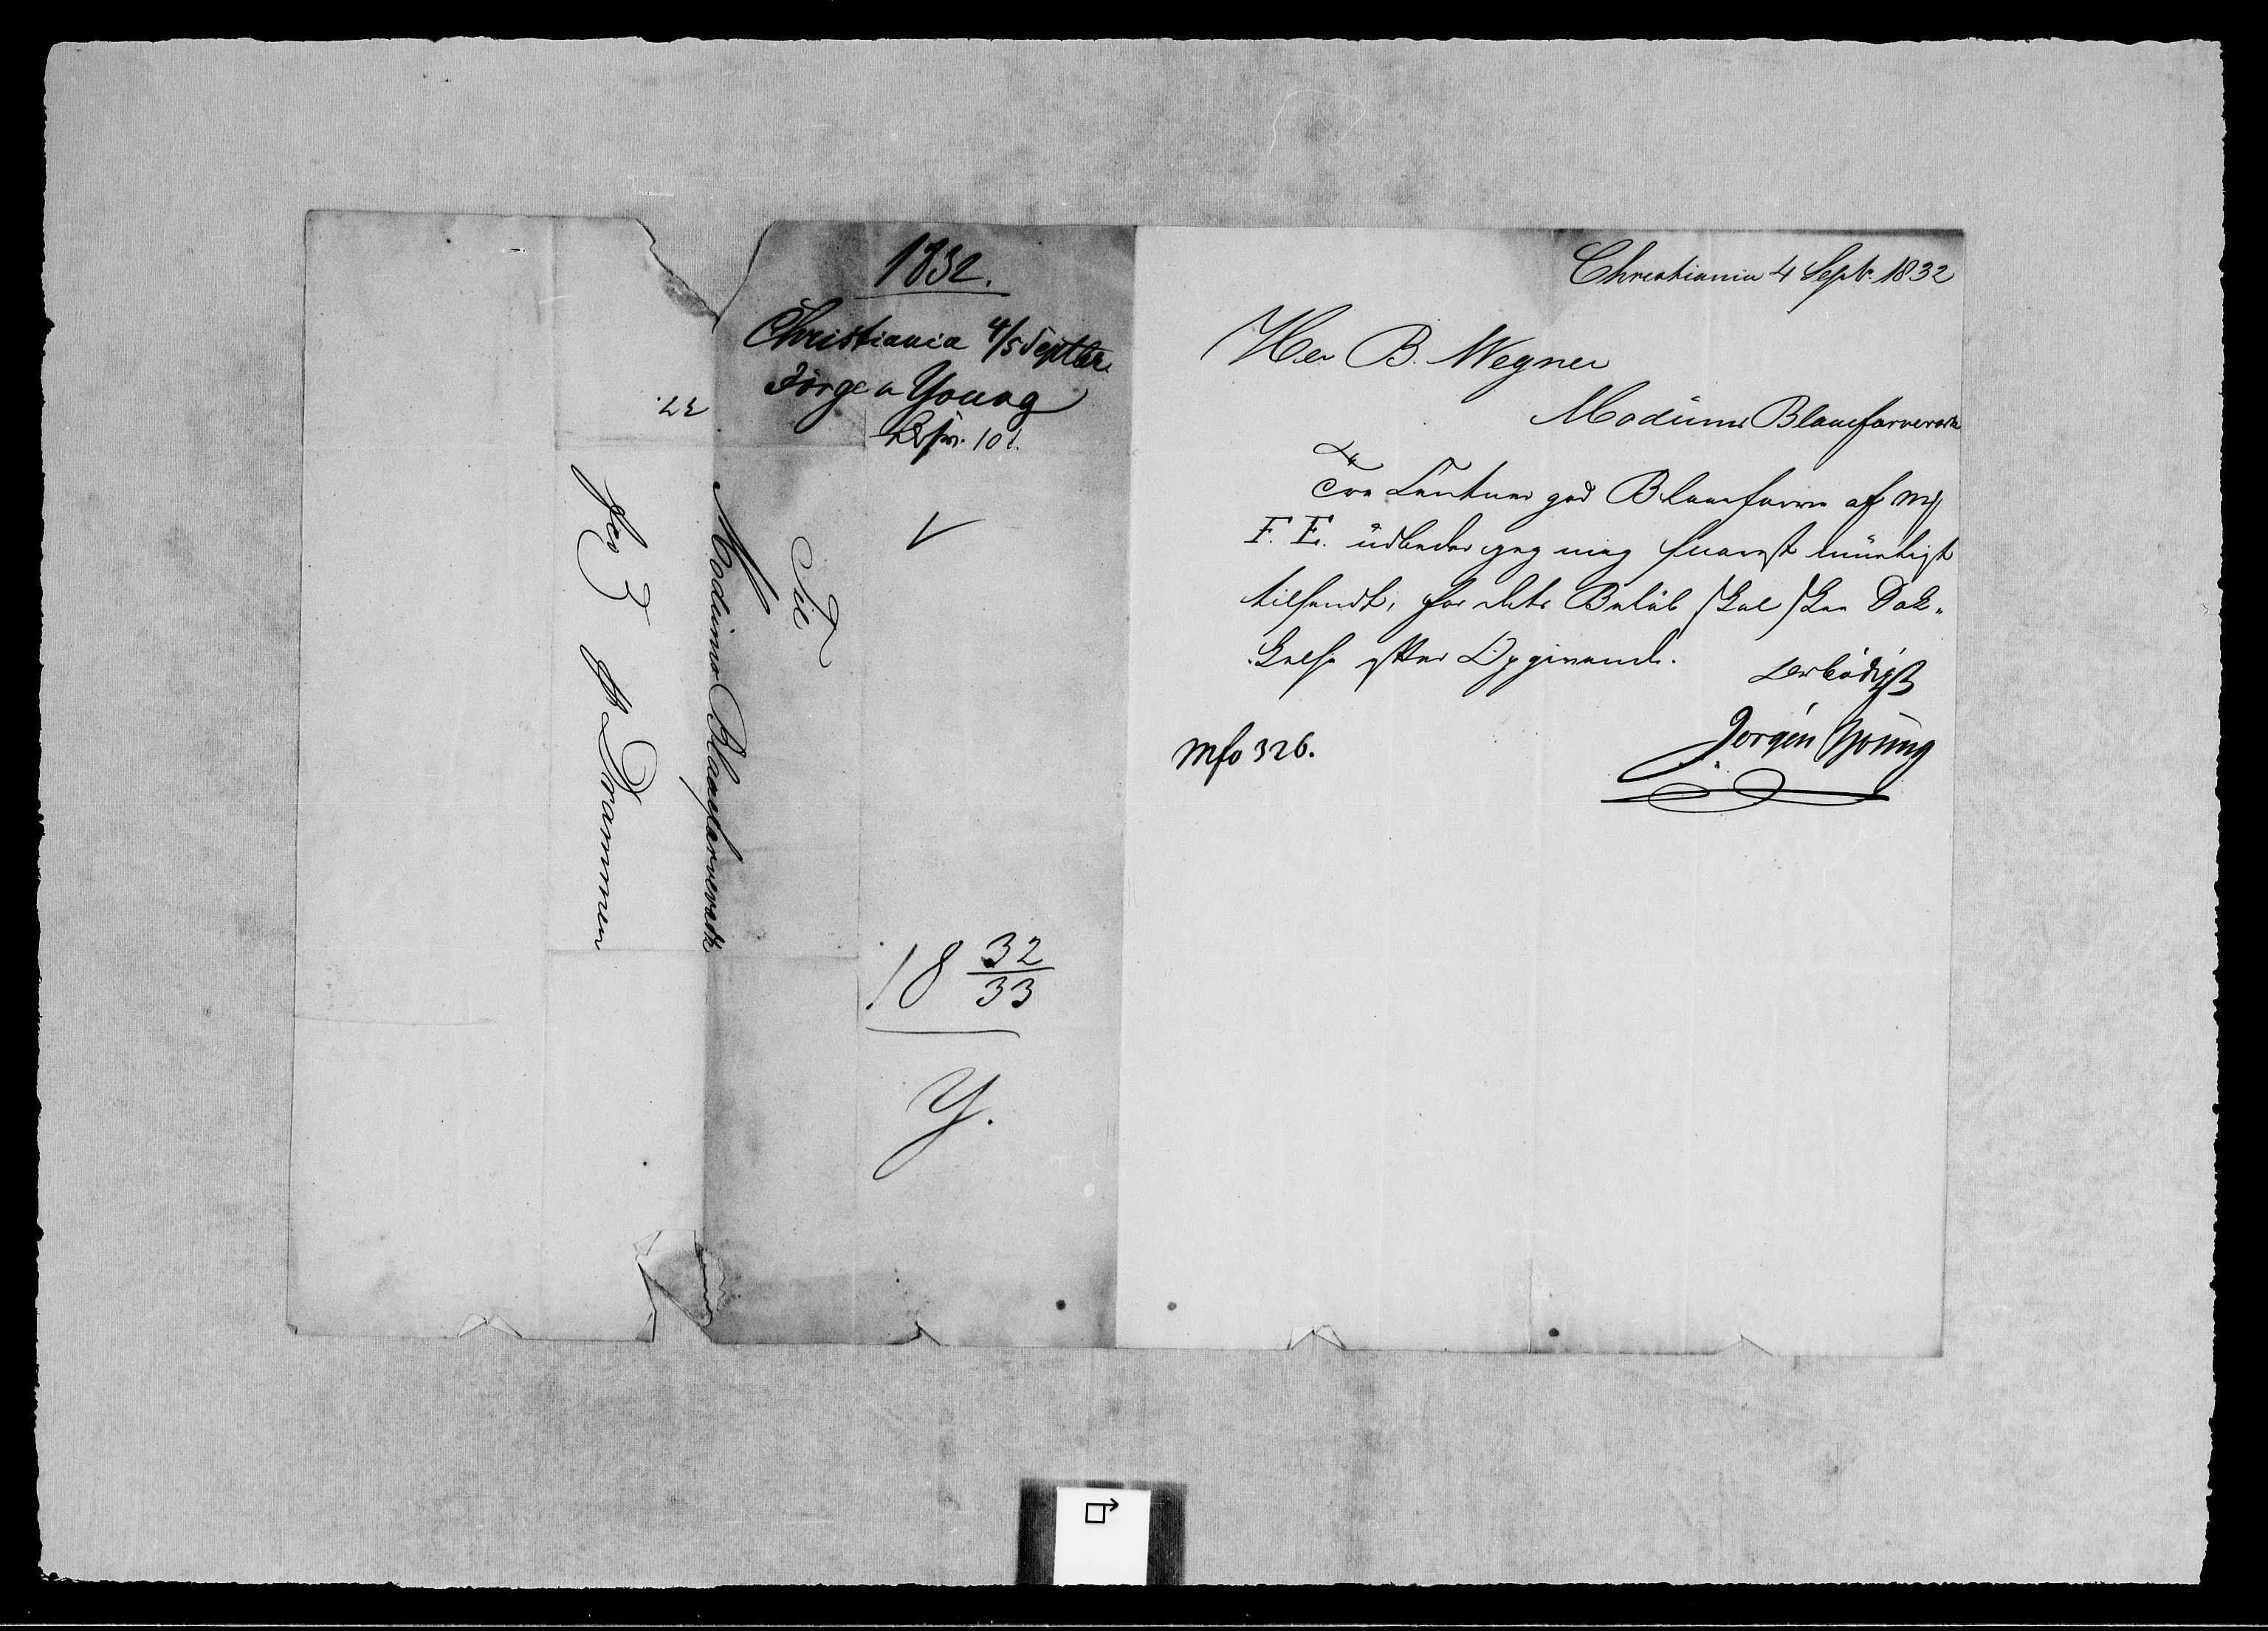 1832.
Christiania 4/5 Septbr.
Jörgen Young
101.
Til
Modums Blaafarveværk
Drammen
18 32/33
Y.
Christiania 4 Septr. 1832
Herr B. Wegner
Modums Blaaefarveværk
Tre Centner god Blaaefarve af
F. E. udbeder jeg mig snarest mueligst
tilsendt, for dets Beløb skal skee Dæk-
kelse efter Opgivende.
Ærbødigst
Jørgen Young
Mfo 326.